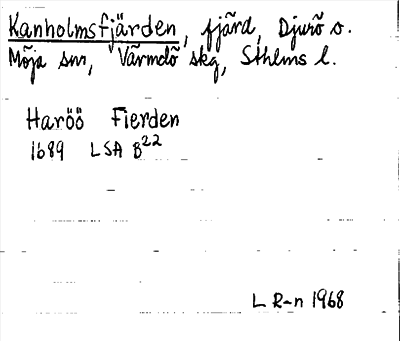 Kanholmsfjärden, fjärd, Djurö o.
Möja snr, Värmdö skg, Sthlms l.
Haröö Fierden
1689 LSA B22
L R-n 1968